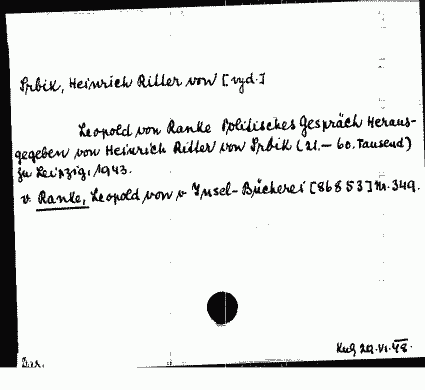 Srbik, Heinrich Ritter von [vyd.]
Leopold von Ranke Politisches Gespräch Heraus-
gegeben von Heinrich Ritter von Srbik (21.– 60. Tausend)
zu Leipzig, 1943.
v. Ranke, Leopold von v Insel-Bücherei [86853] Nr. 349.
Dar.